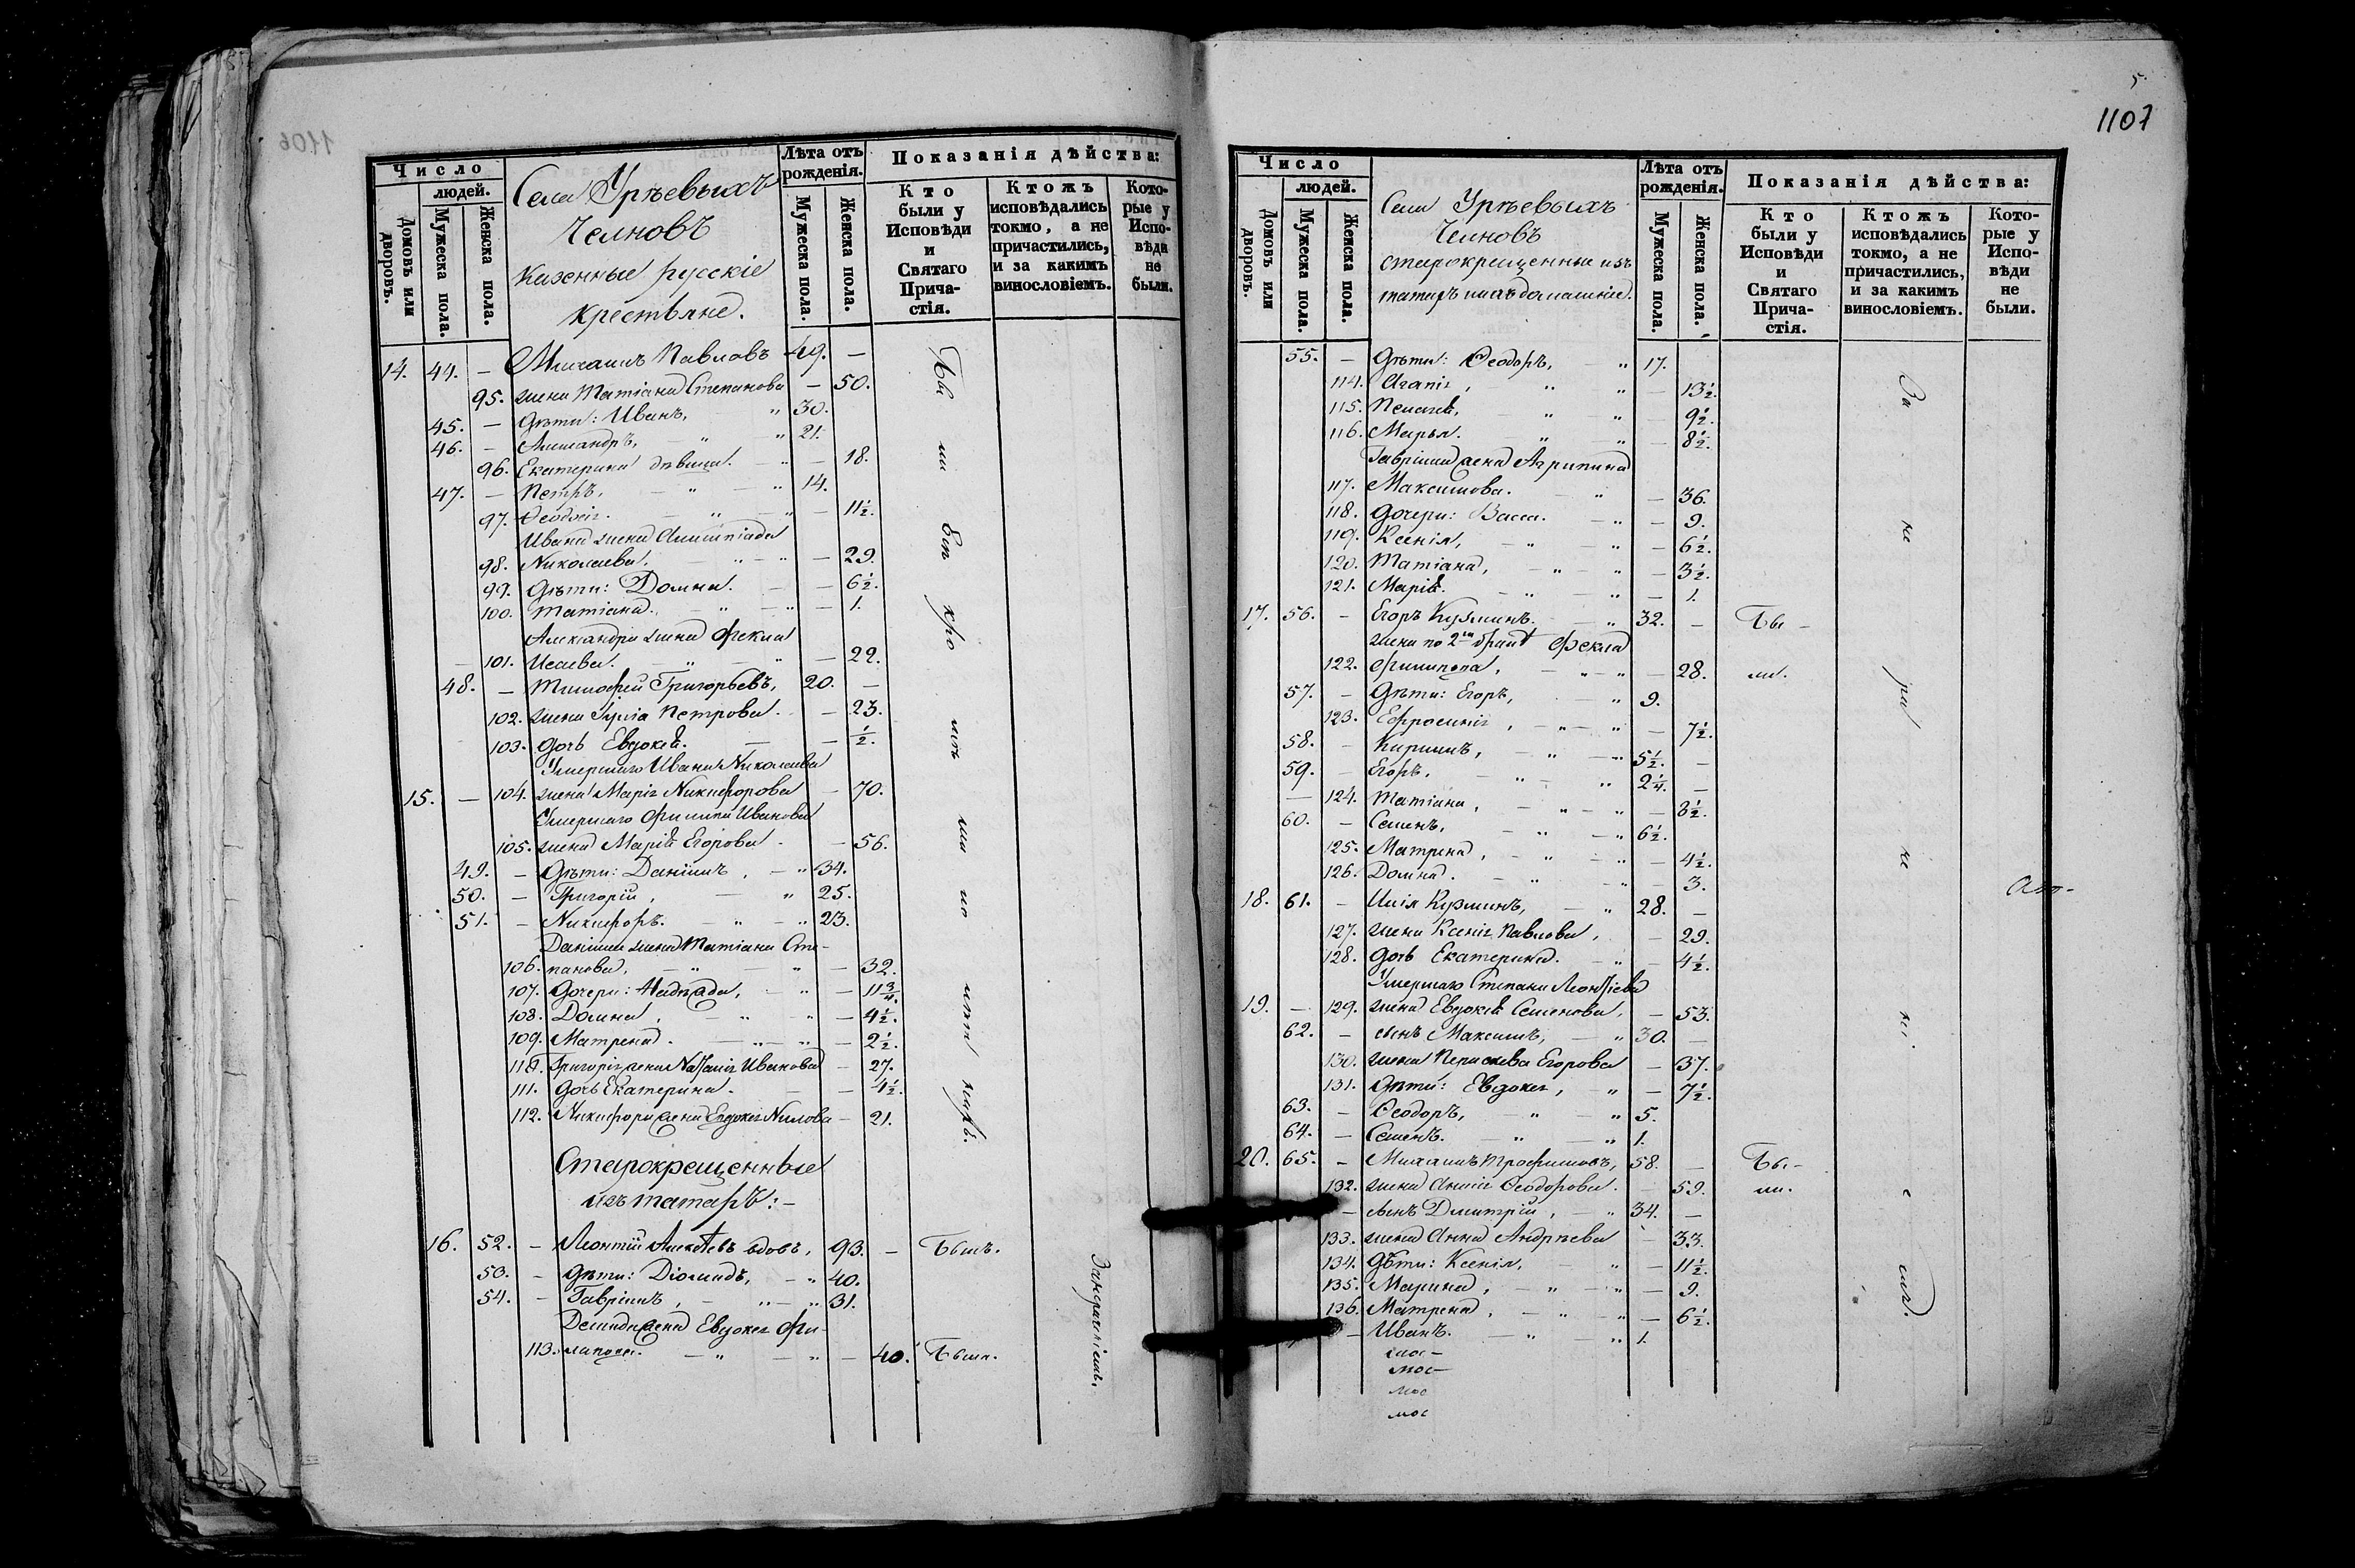 1106
Число
людей.
Домовъ или дворовъ.
Мужеска пола.
Женска пола.
Села Урѣевыхъ
Челновъ
Казенные русскіе
крестьяне.
Лѣта отъ рожденія.
Мужеска пола.
Женска пола.
Показанія дѣйства:
Кто были у Исповѣди и Святаго Прича-стія.
Ктожъ исповѣдались токмо, а не причастились, и за какимъ винословіемъ.
Кото-рые у Испо-вѣди не были.
14. 44. — Михаилъ Павловъ 49. —
95. жена Татіана Степанова — 50.
45. — Дѣти: Иванъ, " 30.
46. — Александръ, " " 21.
96. Екатерина дѣвица. " — 18.
47. — Петръ, " " 14.
97. Ѳеодосія. " " — 11½.
Ивана жена Олимпіада
98. Николаева, " " — 29.
99. Дѣти: Домна. — 6½.
100. Татіана. " " — 1.
Александра жена Фекла
101. Исаева. " " — 22.
48. — Тимофей Григорьевъ, 20. —
102. жена Іулія Петрова. — 23.
103. дочь Евдокія. — ½.
Умершаго Ивана Николаева
15. — 104. жена Марія Никифорова — 70.
Умершаго Филипа Иванова
105. жена Марія Егорова — 56.
49. — Дѣти: Даніилъ, " 34.
50. — Григорій, " 25.
51. — Никифоръ. " " 23.
Даніила жена Татіана Сте-
106. панова, " " — 32.
107. Дочери: " — 11¾.
108. Домна, " " — 4½.
109. Матрена. " " — 2½.
110. Григорія жена Наталія Иванова — 27.
111. дочь Екатерина. — 4½.
112. Никифора жена Евдокія Нилова — 21.
Старокрещенные
изъ татаръ:—
16. 52. — Леонтій Алексѣевъ вдовъ, 93. — Былъ.
53. — Дѣти: Діомидъ, " 40.
54. — Гавріилъ, " " 31.
Демида жена Евдокія Фи-
113. липова. " " — 40. Была.
5.
1107
Число
людей.
Домовъ или дворовъ.
Мужеска пола.
Женска пола.
Села Урѣевыхъ
Челновъ
старокрещенные изъ
татаръ
Лѣта отъ рожденія.
Мужеска пола.
Женска пола.
Показанія дѣйства:
Кто были у Исповѣди и Святаго Прича-стія.
Ктожъ исповѣдались токмо, а не причастились, и за какимъ винословіемъ.
Кото-рые у Испо-вѣди не были.
55. — Дѣти: Ѳеодоръ, " 17.
114. Агапія, " " — 13½.
115. Пелагія, " " — 9½.
116. Марья. " " — 8½.
Гавріила жена Агрипина
117. Максимова. " — 36.
118. Дочери: Васса. " — 9.
119. Ксенія, " " — 6½.
120. Татіана, " " — 3½.
121. Марія. " " — 1.
17. 56. — Егоръ Кузминъ. " 32. — Бы-
жена по 2мъ бракѣ Фекла
122. Филипова, " " — 28. ли.
57. — Дѣти: Егоръ, " 9.
123. Ефросинія, " " — 7½.
58. — Кирилъ, " " 5½. —
59. — Егоръ. " " 2¼. —
— 124. Татіана, " " — 8½.
60. — Семенъ, " " 6½.
125. Матрена, " " — 4½.
126. Домна. " " — 3.
18. 61. — Илія Кузминъ, " 28. —
127. жена Ксенія Павлова, — 29.
128. дочь Екатерина. " — 4½.
Умершаго Степана Леонтіева
19. — 129. жена Евдокія Семенова, — 53.
62. — сынъ Максимъ, " 30. —
130. жена Параскева Егорова — 37.
131. Дѣти: Евдокія, " — 7½.
63. — Ѳеодоръ, " " 5.
64. — Семенъ. " " 1.
20. 65. — Михаилъ Трофимовъ, 58. — Бы-
132. жена Анисія Ѳеодорова. — 59. ли.
— сынъ Дмитрій, " 34. —
133. жена Анна Андреева — 33.
134. Дѣти: Ксенія, " — 11½.
135. Марина, " " — 9.
136. Матрена, " " — 6½.
— Иванъ. " " 1.